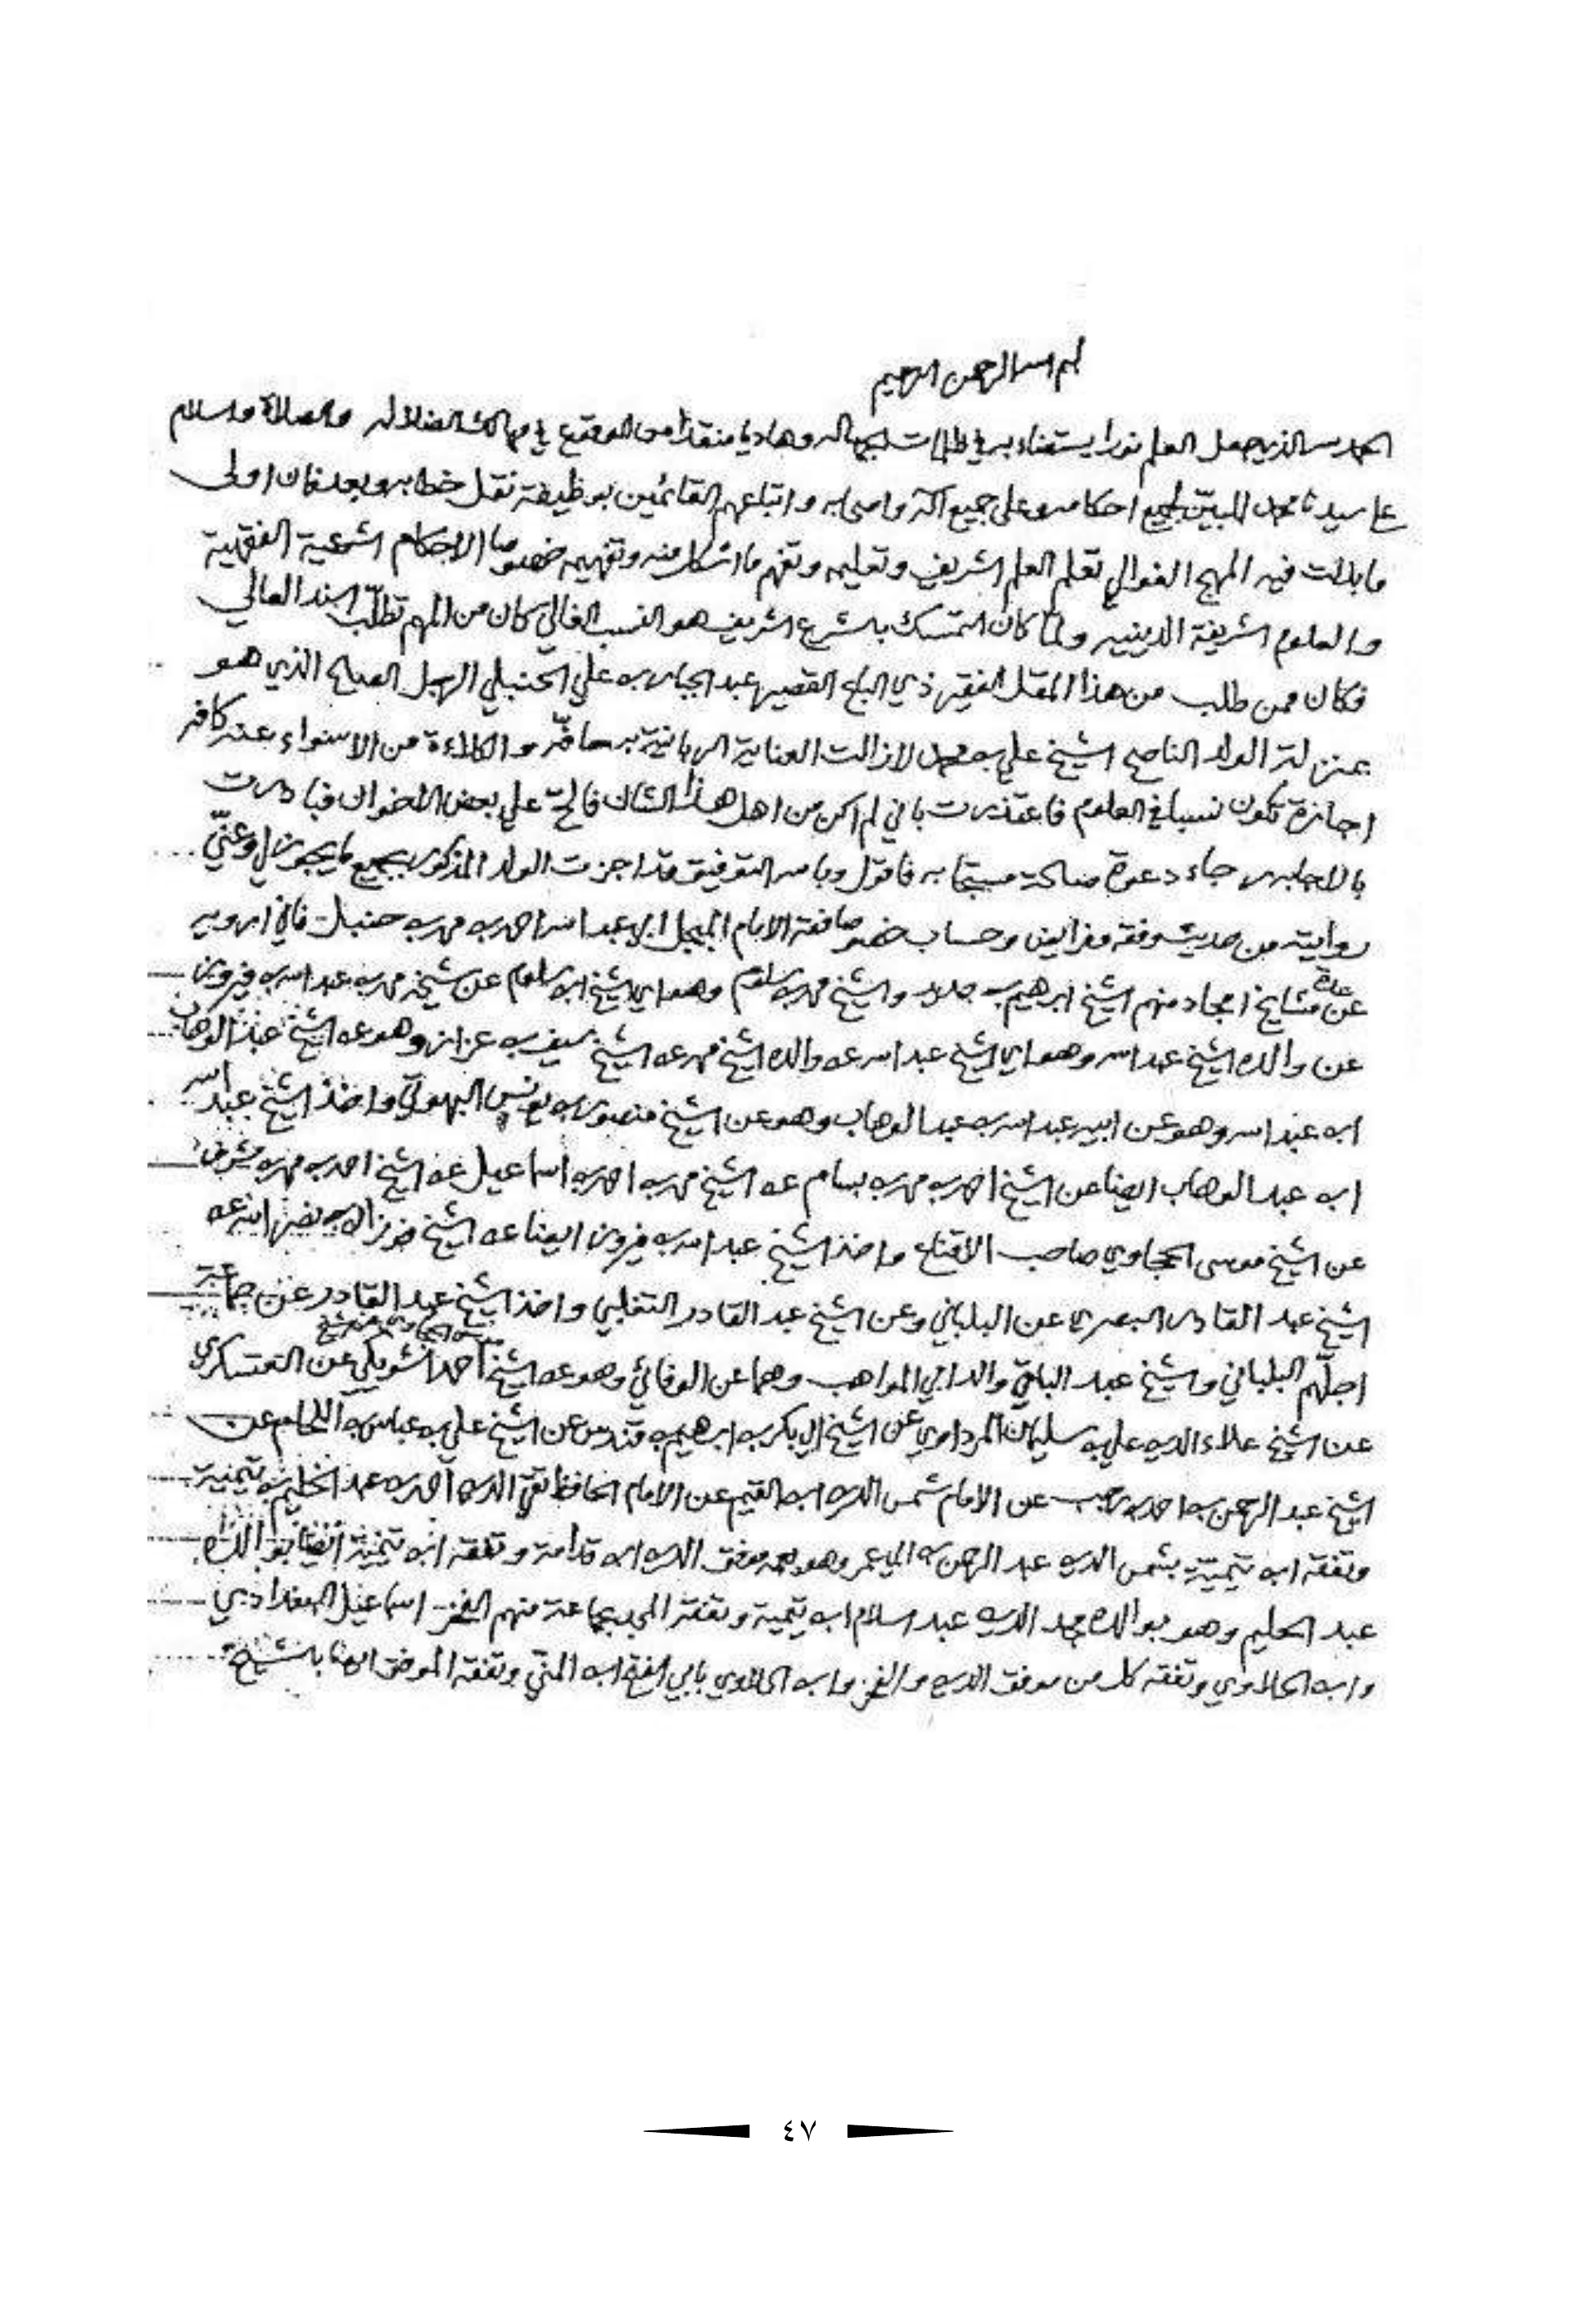 بسم الله الرحمن الرحيم
الحمد لله الذي جعل العلم نورا يستضاء به في ظلمات الجهاله وهاديا منقذا من الوقوع في مهالك الضلاله والصلاة والسلام
على سيدنا محمد المبيّن لجميع احكامه وعلى جميع آله واصحابه واتباعهم القائمين بوظيفة نقل خطابه وبعد فان اولى
ما بذلت فيه المهج الغوالي تعلم العلم الشريف وتعليمه وتفهم ما اشكل منه وتفهيمه خصوصا الاحكام الشرعية الفقهية
والعلوم الشريفة الدينيه ولمّا كان التمسك بالشرع الشريف هو النسب الغالي كان من المهم تطلّب السند العالي
فكان ممن طلب من هذا المقل الفقير ذي الباع القصير عبد الجبار به علي الحنبلي الرجل الصالح الذي هو
بمنزلة الولد الناصح الشيخ علي به محمد لازالت العناية الربانية به حافّه والكلاءة من الاسواء عنه كافه
اجازة تكون نسبا في العلوم فاعتذرت باني لم اكن من اهل هذا الشان فالحّ علي بعض الاخوان فبادرت
بالاجابه رجاء دعوة صالحة مستجابه فاقول وبالله التوفيق قد اجزت الولد المذكور بجميع ما يجوز لي وعنّي
روايته من حديث وفقه وفرائض وحساب خصوصا فقه الامام المبجل ابي عبد الله احمد به محمد به حنبل فاني ارويه
عن عدة مشايخ امجاد منهم الشيخ ابرهيم به جديد والشيخ محمد به سلوم وهو اي الشيخ ابه سلوم عن شيخه محمد به عبد الله به فيروز
عن والده الشيخ عبد الله وهو اي الشيخ عبد الله عه والده الشيخ محمد عه الشيخ سيف به عزاز وهو عه الشيخ عبد الوهاب
ابه عبد الله وهو عن ابيه عبد الله به عبد الوهاب وهو عن الشيخ منصور به يونس البهوتي واخذ الشيخ عبد الله
ابه عبد الوهاب ايضا عن الشيخ احمد به محمد به بسام عه الشيخ محمد به احمد به اسماعيل عه الشيخ احمد به محمد به مشرف
عن الشيخ موسى الحجاوي صاحب الاقناع واخذ الشيخ عبد الله به فيروز ايضا عه الشيخ فوزان به نصر الله عه
الشيخ عبد القادر البصري عن البلباني وعن الشيخ عبد القادر التغلبي واخذ الشيخ عبد القادر عن جماعة
اجلّهم البلباني والشيخ عبد الباقي والد ابي المواهب وهما عن الوفائي وهو عه الشيخ موسى الحجاوي عن الشيخ احمد الشويكي عن العسكري
عن الشيخ علاء الديه علي به سليمان المرداوي عن الشيخ ابي بكر به ابرهيم به قندس عن الشيخ علي به عباس به اللحام عن
الشيخ عبد الرحمن به احمد به رجب عن الامام شمس الديه ابه القيم عن الامام الحافظ تقي الديه احمد به عبد الحليم به تيمية
وتفقه ابه تيمية بشمس الديه عبد الرحمن به ابي عمر وهو بعمه موفق الديه ابه قدامة وتفقه ابه تيمية ايضا بوالده
عبد الحليم وهو بوالده مجد الديه عبد السلام ابه تيمية وتفقه المجد بجماعة منهم الفخر اسماعيل البغدادي
وابه الحلاوي وتفقه كل من موفق الديه والفخر وابه الحلاوي بابي الفتح ابه المنّي وتفقه الموفق ايضا بالشيخ
٤٧